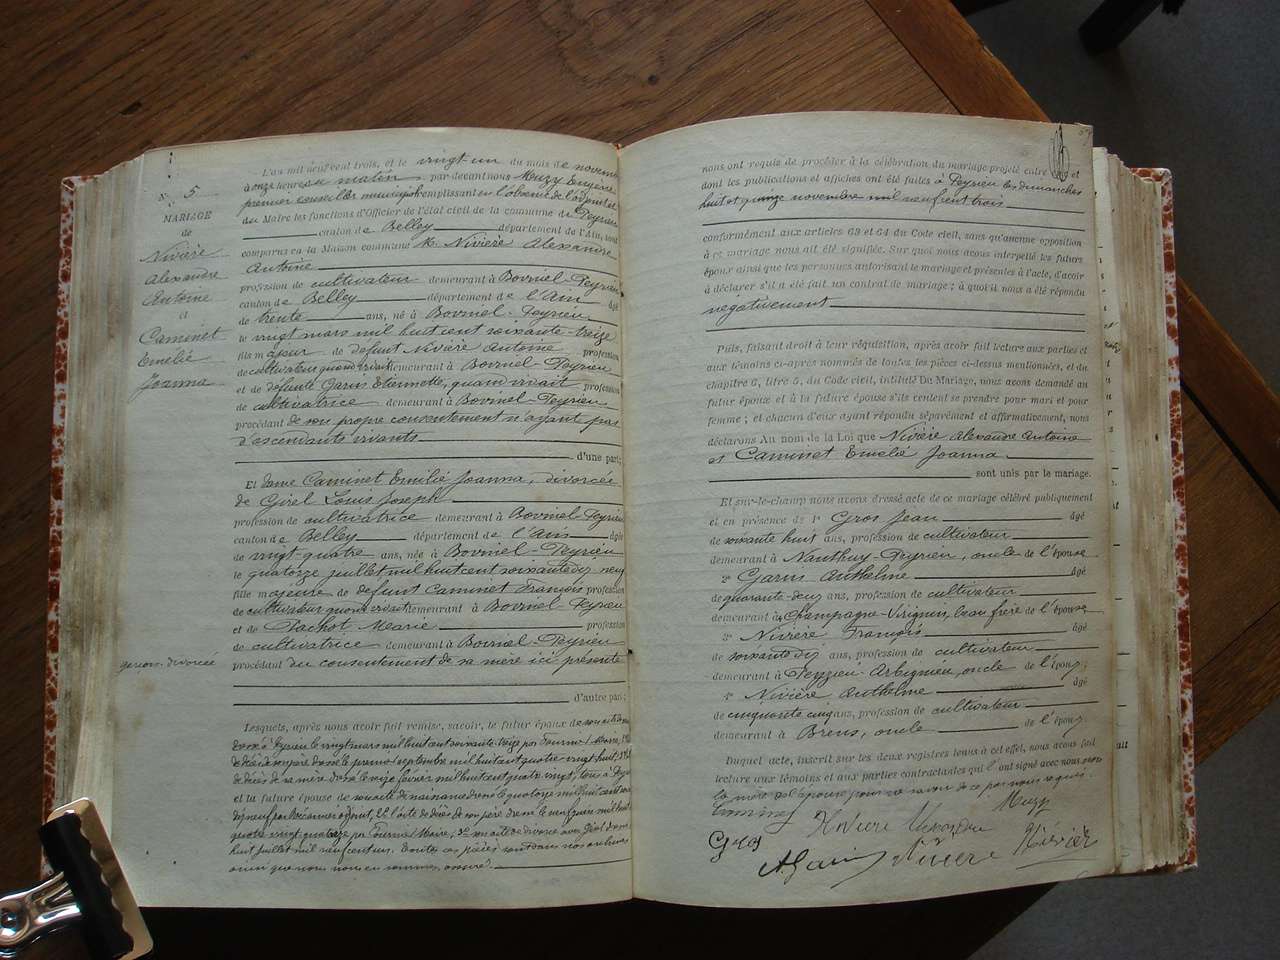 N° 5
MARIAGE
de
Nivière
Alexandre
Antoine
et
Caminet
Emelie
Joanna
L'an mil neuf cent trois, et le vingt-un du mois de novem
à onze heures du matin par devant nous Muzy Eugène
premier conseiller municipal remplissant en l'absence de l'adjoint et
du Maire les fonctions d'Officier de l'état civil de la commune de Peyrieu
canton de Belley département de l'Ain, sont
comparus en la Maison commune M. Nivière Alexandre
Antoine
profession de cultivateur demeurant à Bovinel-Peyrieu
canton de Belley département de l'Ain âgé
de trente ans, né à Bovinel-Peyrieu
le vingt mars mil huit cent soixante-treize
fils majeur de défunt Nivière Antoine profession
de cultivateur quand vivait demeurant à Bovinel Peyrieu
et de défunte Garin Etiennette, quand vivait profession
de cultivatrice demeurant à Bovinel-Peyrieu
procédant de son propre consentement n'ayant pas
d'escendants vivants
d'une part;
Et dame Caminet Emilie Joanna, divorcée
de Girel Louis Joseph
profession de cultivatrice demeurant à Bovinel-Peyrieu
canton de Belley département de l'Ain âgée
de vingt quatre ans, née à Bovinel Peyrieu
le quatorze juillet mil huit cent soixante dix-neuf
fille majeure de défunt Caminet François profession
de cultivateur quand vivait demeurant à Bovinel Peyrieu
et de Pachot Marie profession
de cultivatrice demeurant à Bovinel Peyrieu
procédant du consentement de sa mère ici présente
divorcée
d'autre part;
Lesquels, après nous avoir fait remise, savoir, le futur époux de son acte
dressé à Peyrieu le vingt mars mil huit cent soixante treize par Fournier Maire,
de décès de son père dressé le premier septembre mil huit cent quatre vingt huit,
de décès de sa mère dressé le seize février mil huit cent quatre vingt, tous à Peyrieu
et la future épouse de son acte de naissance dressé le quatorze mil huit cent soixante
dix neuf par adjoint, 2° l'acte de décès de son père dressé le neuf juin mil huit
quatre vingt quatorze par Fournier Maire, 3° son acte de divorce avec Girel dressé
huit juillet mil neuf cent un. Toutes ces pièces sont dans nos archives
ainsi que nous nous en sommes assuré.
nous ont requis de procéder à la célébration du mariage projeté entre eux et
dont les publications et affiches ont été faites à Peyrieu les dimanches
huit et quinze novembre mil neuf cent trois
conformément aux articles 63 et 64 du Code civil, sans qu'aucune opposition
à ce mariage nous ait été signifiée. Sur quoi nous avons interpellé les futurs
époux ainsi que les personnes autorisant le mariage et présentes à l'acte, d'avoir
à déclarer s'il a été fait un contrat de mariage; à quoi il nous a été répondu
négativement
Puis, faisant droit à leur réquisition, après avoir fait lecture aux parties et
aux témoins ci-après nommés de toutes les pièces ci-dessus mentionnées, et du
chapitre 6, titre 5, du Code civil, intitulé Du Mariage, nous avons demandé au
futur époux et à la future épouse s'ils veulent se prendre pour mari et pour
femme; et chacun d'eux ayant répondu séparément et affirmativement, nous
déclarons Au nom de la Loi que Nivière Alexandre Antoine
et Caminet Emelié Joanna
sont unis par le mariage.
Et sur-le-champ nous avons dressé acte de ce mariage célébré publiquement
et en présence de 1° Gros Jean âgé
de soixante huit ans, profession de cultivateur
demeurant à Nanthuy-Peyrieu, oncle de l'épouse
2° Garin Anthelme âgé
de quarante-deux ans, profession de cultivateur
demeurant à Champagne-Virignin, beau frère de l'épouse
3° Nivière François âgé
de soixante dix ans, profession de cultivateur
demeurant à Peyzieu-Arbignieu, oncle de l'époux
4° Nivière Anthelme âgé
de cinquante cinq ans, profession de cultivateur
demeurant à Brens, oncle de l'époux
Duquel acte, inscrit sur les deux registres tenus à cet effet, nous avons fait
lecture aux témoins et aux parties contractantes qui l'ont signé avec nous
la mère de l'épouse pour ne savoir de ce par nous requis.
Caminet Nivière Alexandre Muzy
Gros
A. Garin Nivière Nivière